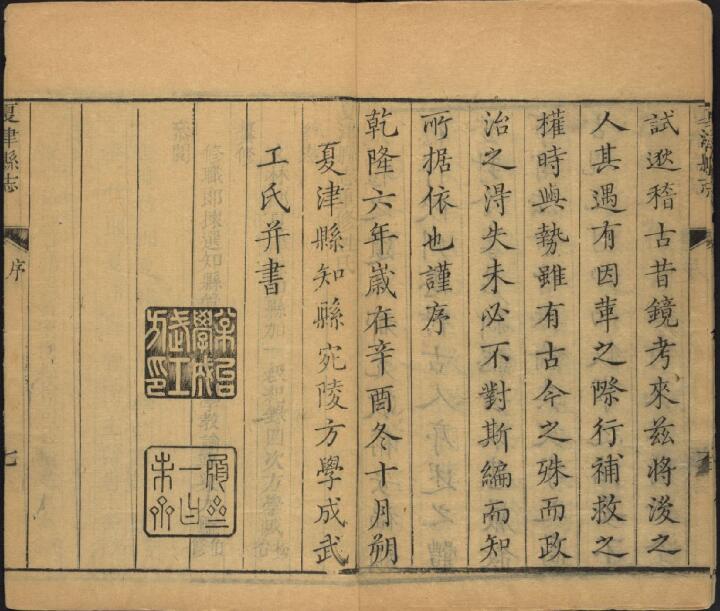 試逖稽古昔鏡考來兹將後之
人其遇有因革之際行補救之
權時與勢雖有古今之殊而政
治之淂失未必不對斯編而知
所据依也謹序
乾隆六年歲在辛酉冬十月朔
夏津縣知縣宛陵方學成武
工氏并書
夏津縣志
序
七